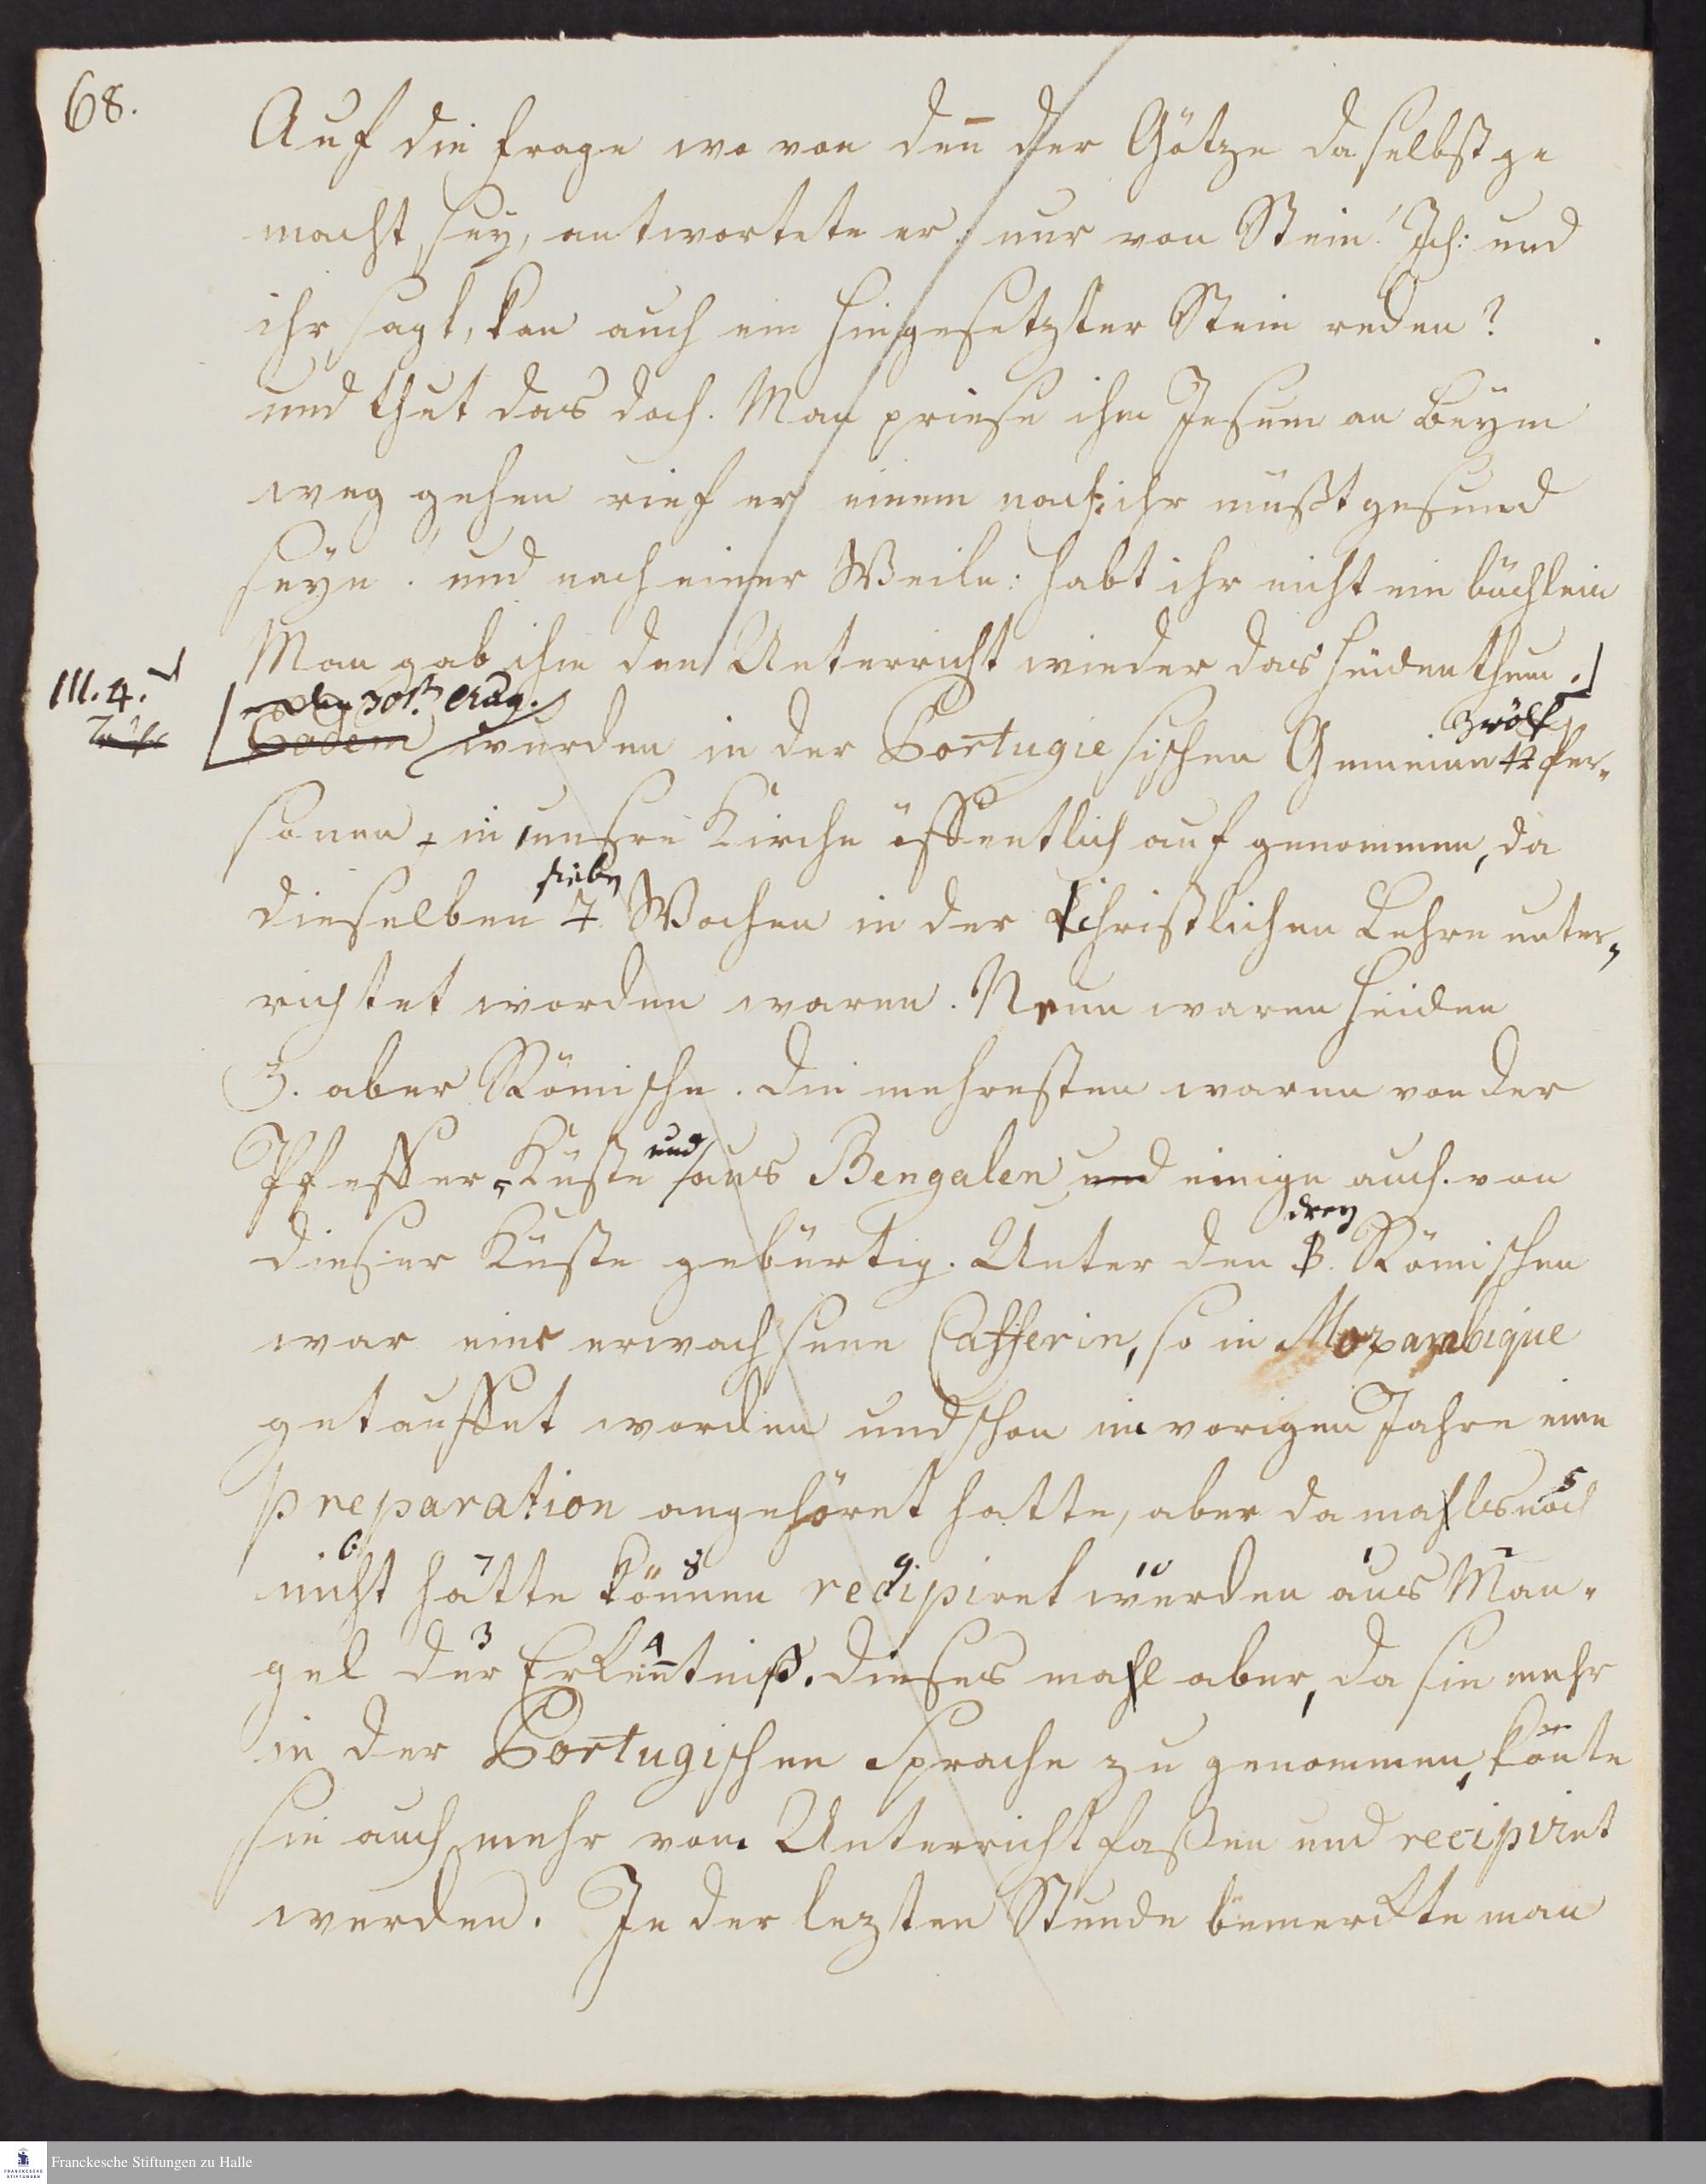 68.
Auf die Frage wo von deñ der Götze daselbst ge
macht sey, antwortete er nur von Stein! Ich: und
ihr sagt, kan auch ein hingesetzter Stein reden?
und thut das doch. Man priese ihm Jesum an Beym
weg gehen rief er einem nach: ihr müßt gesund
seyn! und nach einer Weile: habt ihr nicht ein büchlein
Man gab ihm den Unterricht wieder das Heidenthum.
III. 4.
den 30st. Aug.
zwölf
Eodem wurden in der Portugiesischen Gemeine 12 Per-
sonen, in unsre Kirche öffentlich auf genommen, da
sieben
dieselben 7. Wochen in der Christlichen Lehre unter-
richtet worden waren. Neun waren Heiden
3. aber Römische. Die mehresten waren von der
und
Pfeffer-Küste aus Bengalen und einige auch von
drey
dieser Küste gebürtig. Unter den 3. Römischen
war eine erwachsene Cafferin, so in Mozambique
getauffet worden und schon im vorigen Jahre eine
preparation angehöret hatte, aber damahls noch
5
6 7 8 9. 10 1 2
nicht hätte können recipiret werden aus Man-
3 4
gel der Erkeñtniß. Dieses mahl aber, da sie mehr
in der Portugischen Sprache zu genommen, koñte
sie auch mehr vom Unterricht faßen und recipiret
werden. In der lezten Stunde bemerckte man
Franckesche Stiftungen zu Halle